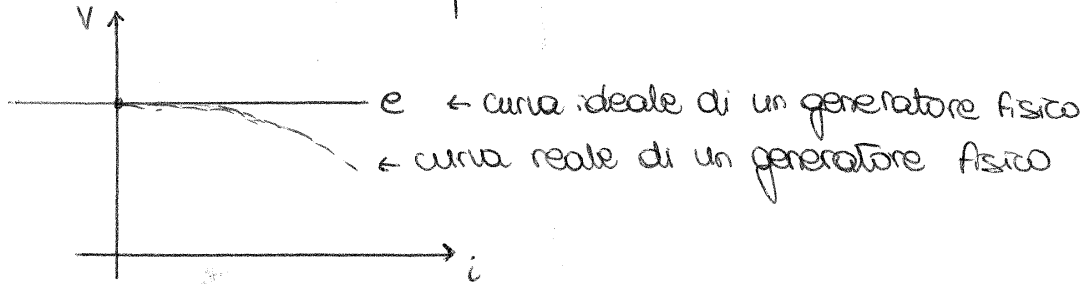 V
e ← curva ideale di un generatore fisico
← curva reale di un generatore fisico
i